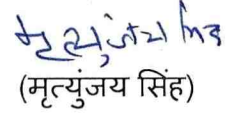 मृत्युंजय सिंह
(मृत्युंजय सिंह)